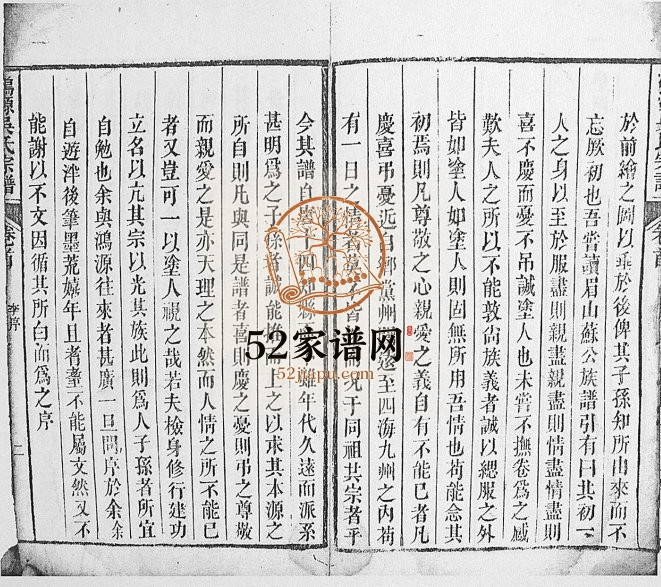 於前繪之圖以垂於後俾其子孫知所由來而不
忘厥初也吾嘗讀眉山蘇公族譜引有曰其初一
人之身以至於服盡則親盡親盡則情盡情盡則
喜不慶而憂不吊誠塗人也未嘗不撫卷爲之感
歎夫人之所以不能敦尙族義者誠以緦服之外
皆如塗人如塗人則固無所用吾情也苟能念其
初焉則凡尊敬之心親愛之義自有不能已者凡
慶喜弔憂近自鄉黨州 遠至四海九州之内苟
有一日之 者莫不皆 而况于同祖共宗者乎
今其譜自 十四 縣 雖年代久遠而派系
甚明爲之子孫者誠能 而上之以求其本源之
所自則凡與同是譜者喜則慶之憂則弔之尊敬
而親愛之是亦天理之本然而人情之所不能已
者又豈可一以塗人視之哉若夫檢身修行建功
立名以亢其宗以光其族此則爲人子孫者所宜
自勉也余與鴻源往來者甚廣一旦問序於余余
自遊泮後筆墨荒嬉年且耆耋不能屬文然又不
能謝以不文因循其所白而爲之序
鴻源吳氏宗譜
卷首
李序
二
氏宗譜
52家谱网
52jiapu.com